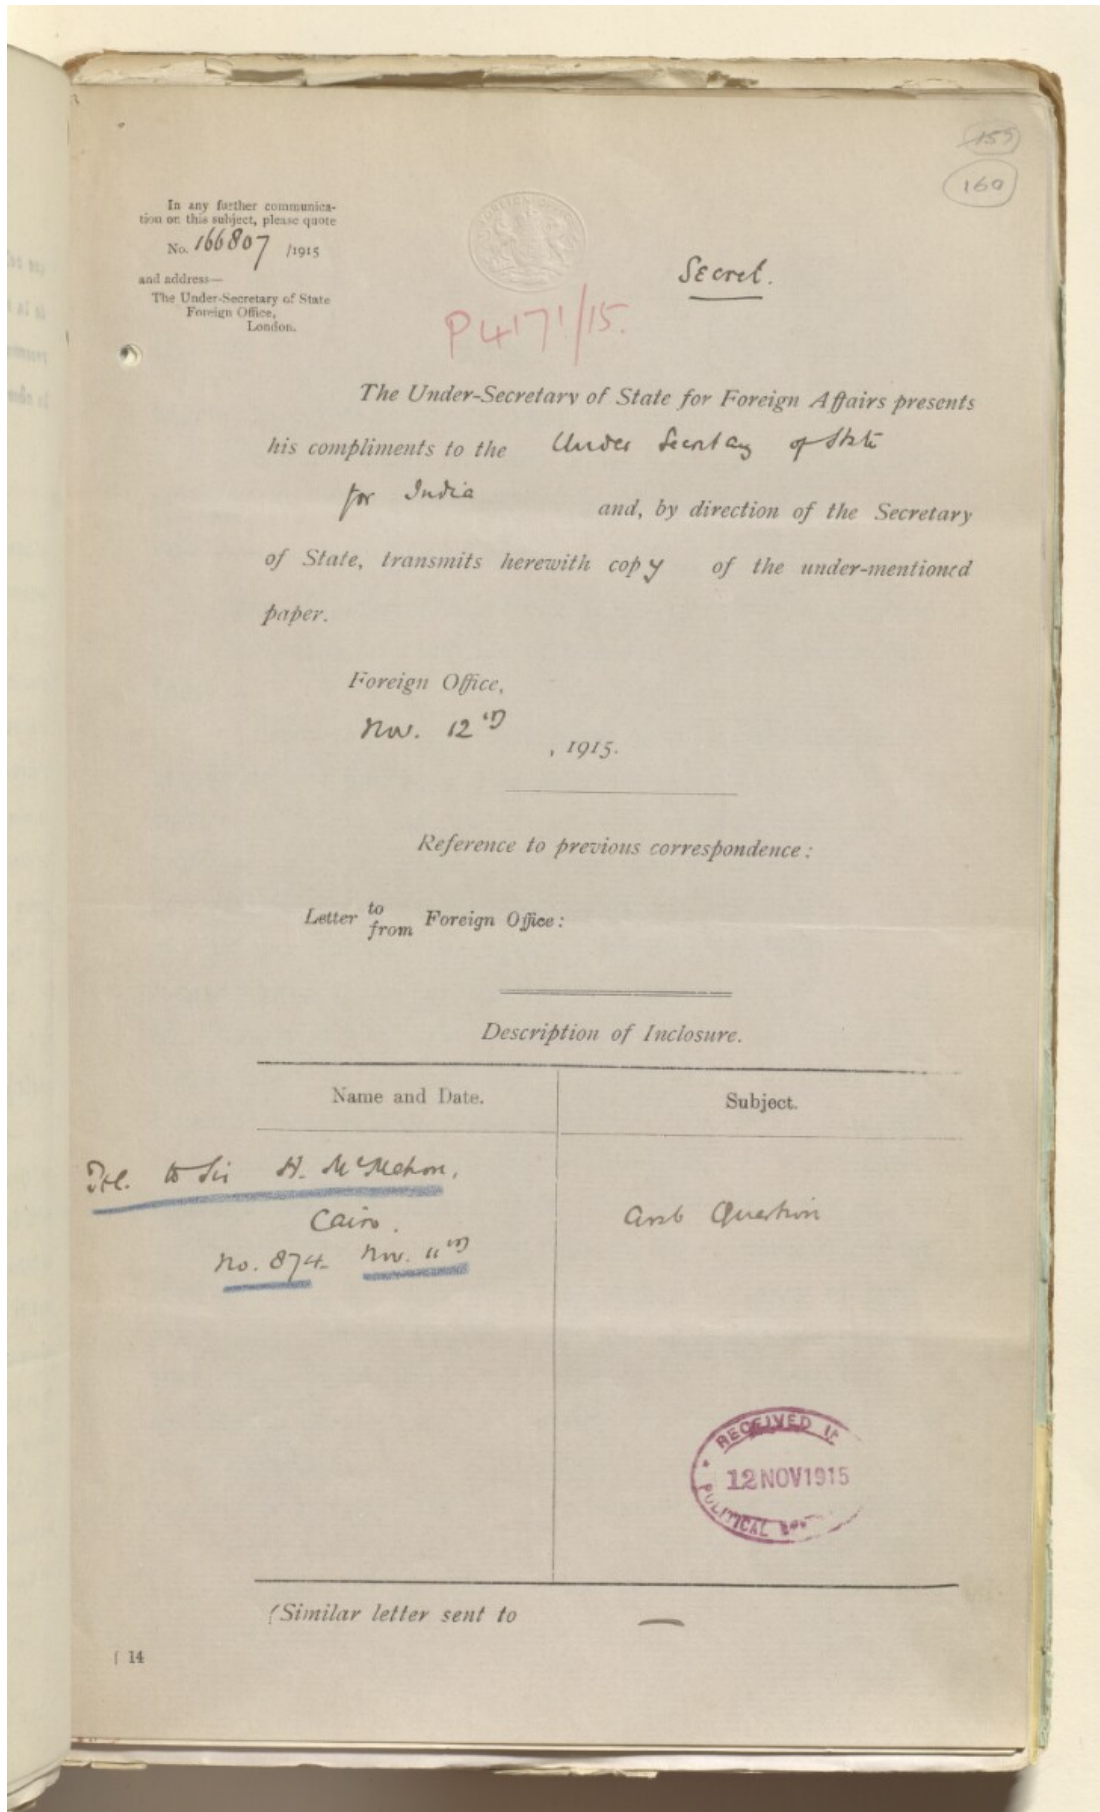 155
160
In any further communica-
tion on this subject, please quote
No. 166807 /1915
and address—
The Under-Secretary of State
Foreign Office,
London.
Secret.
P4171/15.
The Under-Secretary of State for Foreign Affairs presents
his compliments to the Under Secretary of State
for India and, by direction of the Secretary
of State, transmits herewith copy of the under-mentioned
paper.
Foreign Office,
Nov. 12th
, 1915.
Reference to previous correspondence:
Letter to from Foreign Office:
Description of Inclosure.
Name and Date. Subject.
Tel. to Sir H. McMahon.
Cairo. Arab Question
No. 874 Nov. 11th
RECEIVED
12 NOV 1915
POLITICAL
(Similar letter sent to —
14